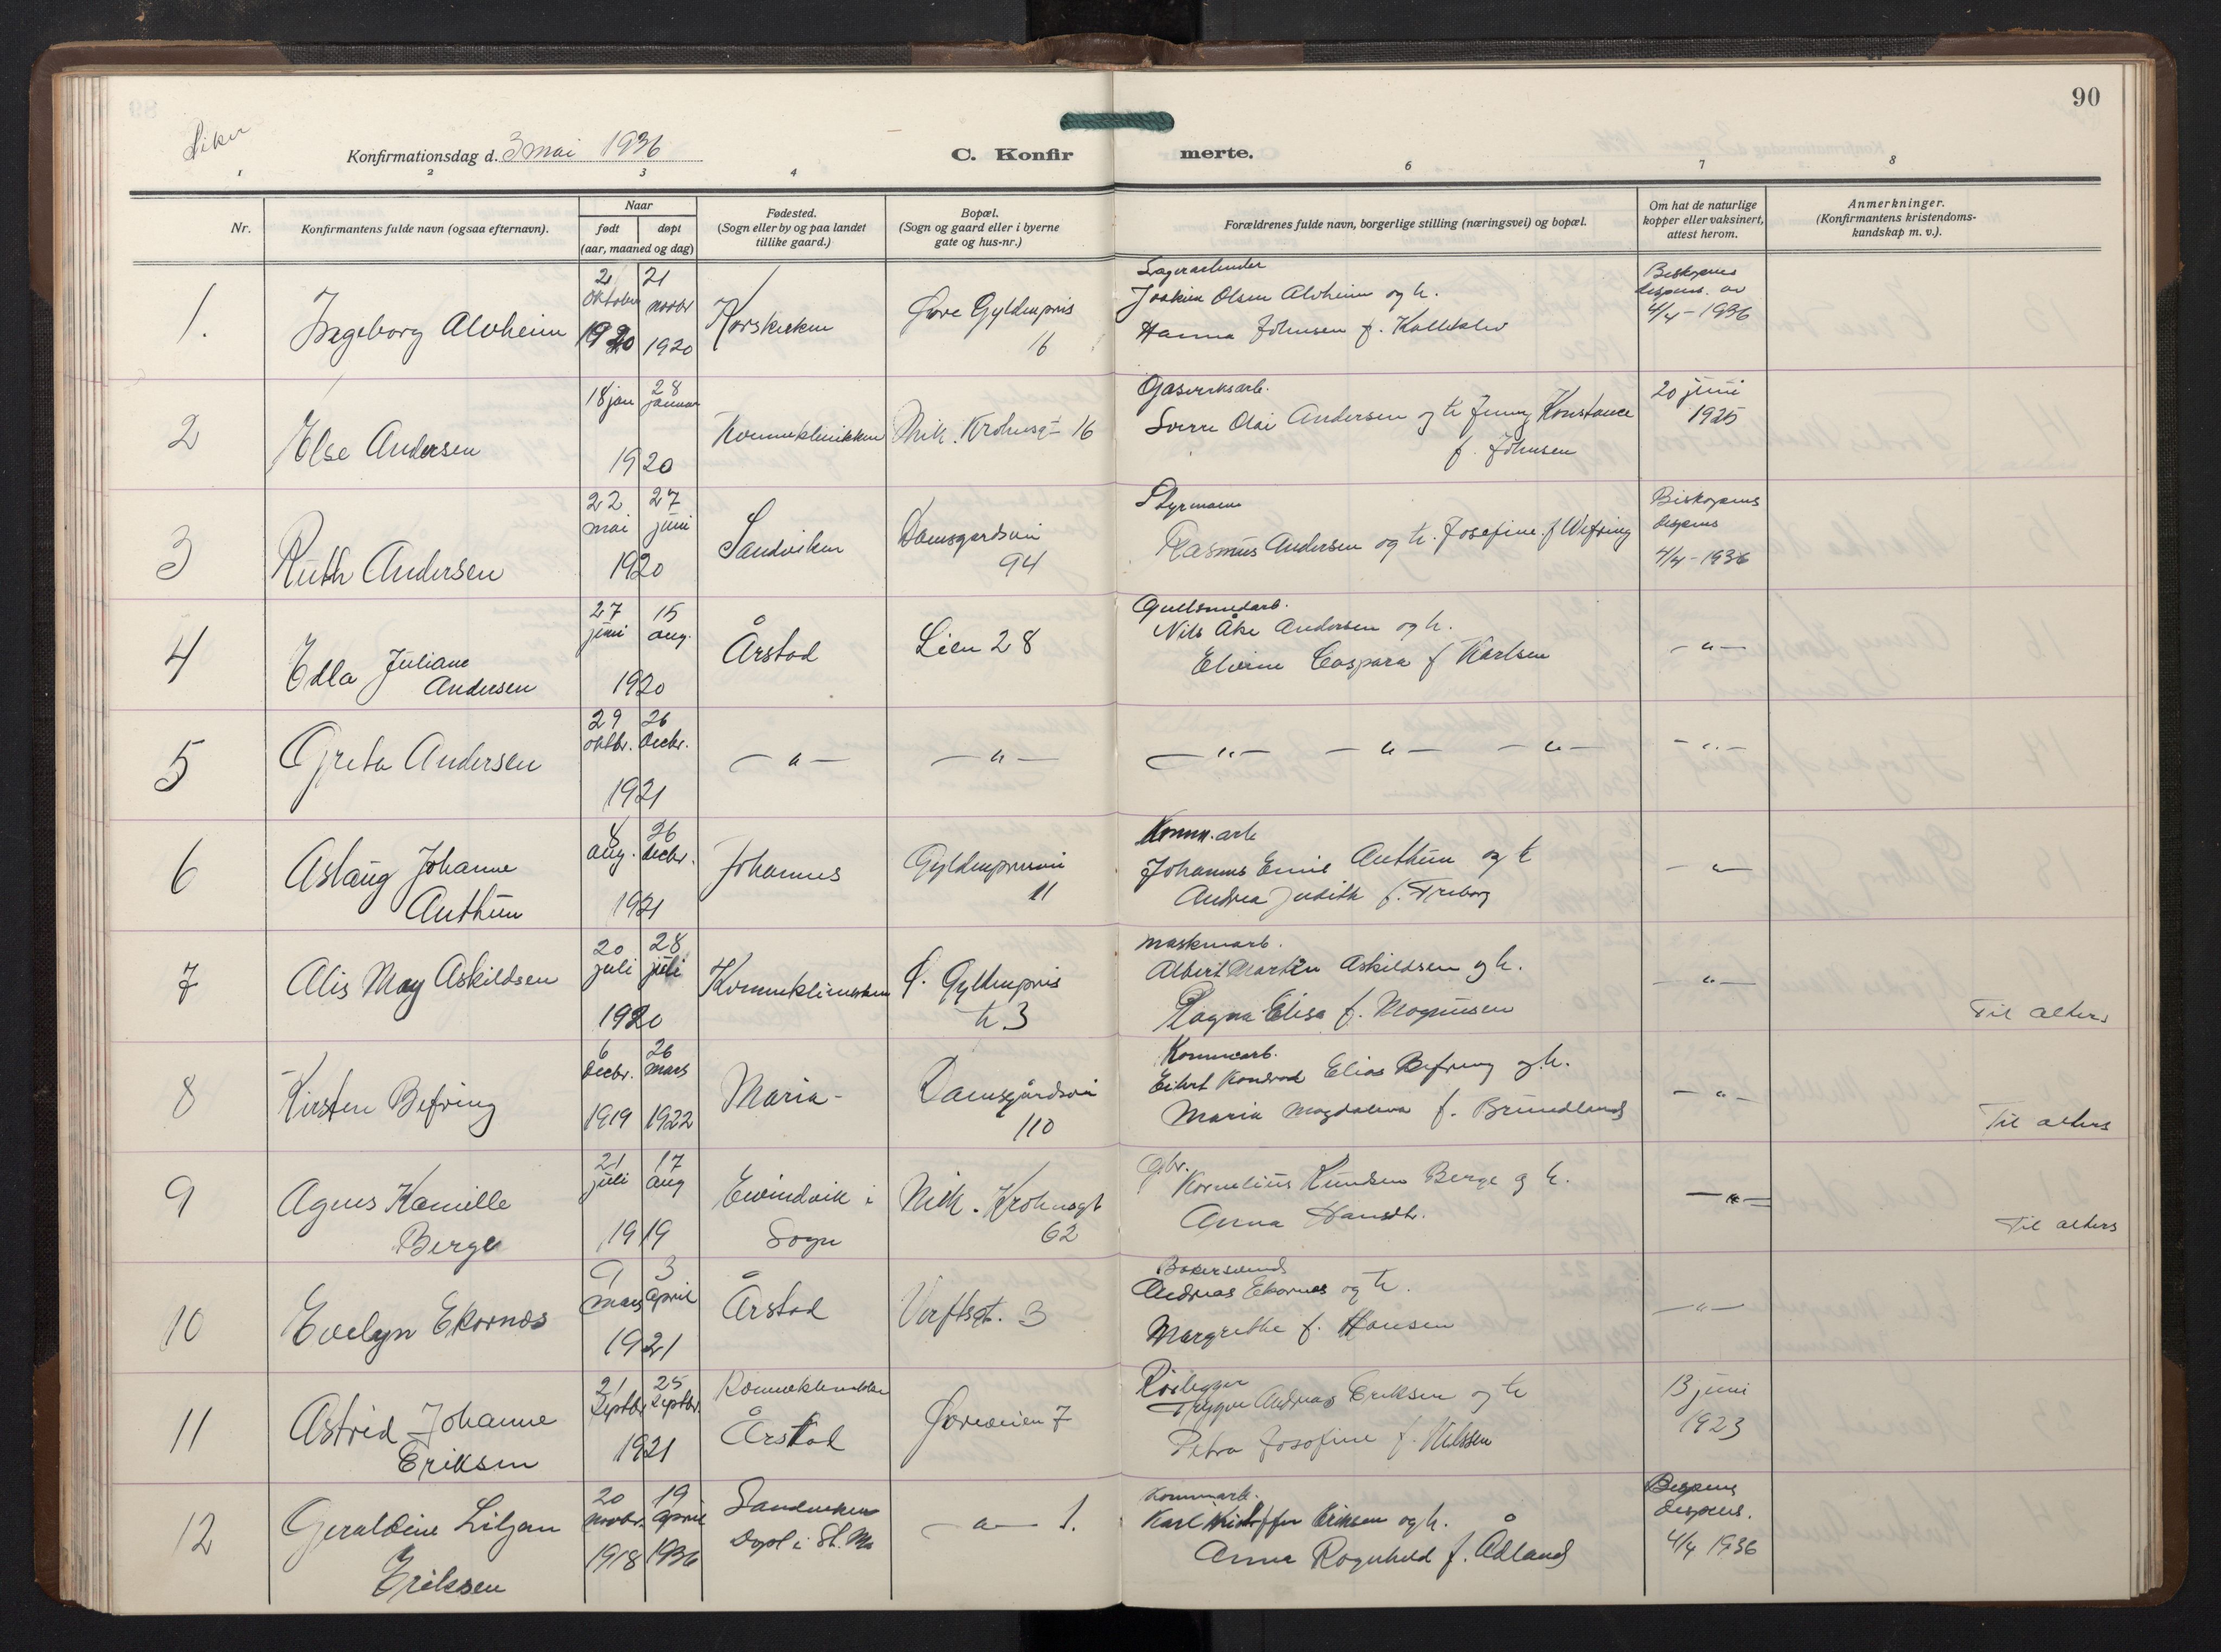 90
Konfirmationsdag d. 3 mai 1936
C. Konfirmerte.
1 2 3 4 6 7 8
Nr.
Konfirmantens fulde navn (ogsaa efternavn).
Naar
født døpt
(aar, maaned og dag)
Fødested.
(Sogn eller by og paa landet
tillike gaard.)
Bopæl.
(Sogn og gaard eller i byerne
gate og hus-nr.)
Forældrenes fulde navn, borgerlige stilling (næringsvei) og bopæl.
Om hat de naturlige
kopper eller vaksinert,
attest herom.
Anmerkninger.
(Konfirmantens kristendoms-
kundskap m. v.).
1.
Ingeborg Alvheim
2 oktober 1920
21 novbr 1920
Korskirken
Øvre Gyldenpris
16
Lagerarbeider
Joakim Olsen Alvheim og h.
Hanna Johnsen f. Kolleklev
Biskopens
dispens. av
4/4 - 1936
2
Else Andersen
18 jan 28 januar
1920
Kvinneklinikken
Nik. Krohnsgt 16
Gasverksarb.
Sverre Olai Andersen og h Jenny Konstance
f. Johnsen
20 juni
1925
3
Ruth Andersen
22 mai 27 juni
1920
Sandviken
Damsgardsvei
94
Styrmann
Rasmus Andersen og h. Josefine f Wefring
Biskopens
dispens
4/4 - 1936
4
Edla Juliane
Andersen
27 juni 15 aug.
1920
Årstad
Lien 28
Gullsmedarb.
Nils Åke Andersen og h.
Elvine Caspara f Karlsen
- " -
5
Greta Andersen
29 oktbr. 26 decbr.
1921
- " -
- " -
- " - - " - - " -
- " -
6
Aslaug Johanne
Anthun
4 aug. 26 decbr.
1921
Johannes
Gyldenprisvei
11
Komm. arb
Johannes Emil Anthun og h
Andrea Judith f. Treborg
- " -
7
Alis May Askildsen
20 juli 28 juli
1920
Kvinneklinikken
Ø. Gyldenpris
h 3
Maskinarb.
Albert Martin Askildsen og h.
Ragna Elisa f. Magnussen
- " -
Til alters
8
Kirsten Befring
6 decbr. 1919
26 mars 1922
Maria -
Damsgårdsvei
110
Kommearb.
Eilert Kondrad Elias Befring og h.
Maria Magdalena f. Brundland
- " -
Til alters
9
Agnes Kamille
Berge
21 juli 17 aug
1919
Eivindvik i
Sogn
Nik. Krohnsgt
62
Gbr.
Kornelius Knudsen Berge og h.
Anna Hansdtr.
- " -
Til alters
10
Evelyn Ekornes
9 mars 3 april
1921
Årstad
Verftsgt. 3
Bakersvend
Andreas Ekornes og h.
Margrethe f. Hansen
- " -
11
Astrid Johanne
Eriksen
21 septbr. 25 septbr.
1921
Kvinneklinikken
Årstad
Øvreveien 7
Rørlegger
Trygve Andreas Eriksen og h
Petra Josofine f. Nilssen
13 juni
1923
12
Geraldine Liljan
Eriksen
20 novbr. 1918
19 april 1936
Sandviken
Døpt i St. M.
- " - 1.
Kommarb.
Karl Kristoffer Eriksen og h.
Anna Rognhild f. Ådland
dispens.
4/4 1936